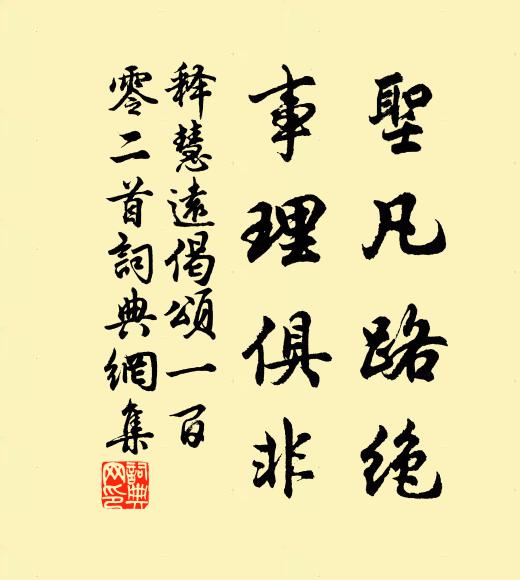 聖凡路絶
事理俱非
释慧遠偈頌一百
零二首詞典網集
詞典网印